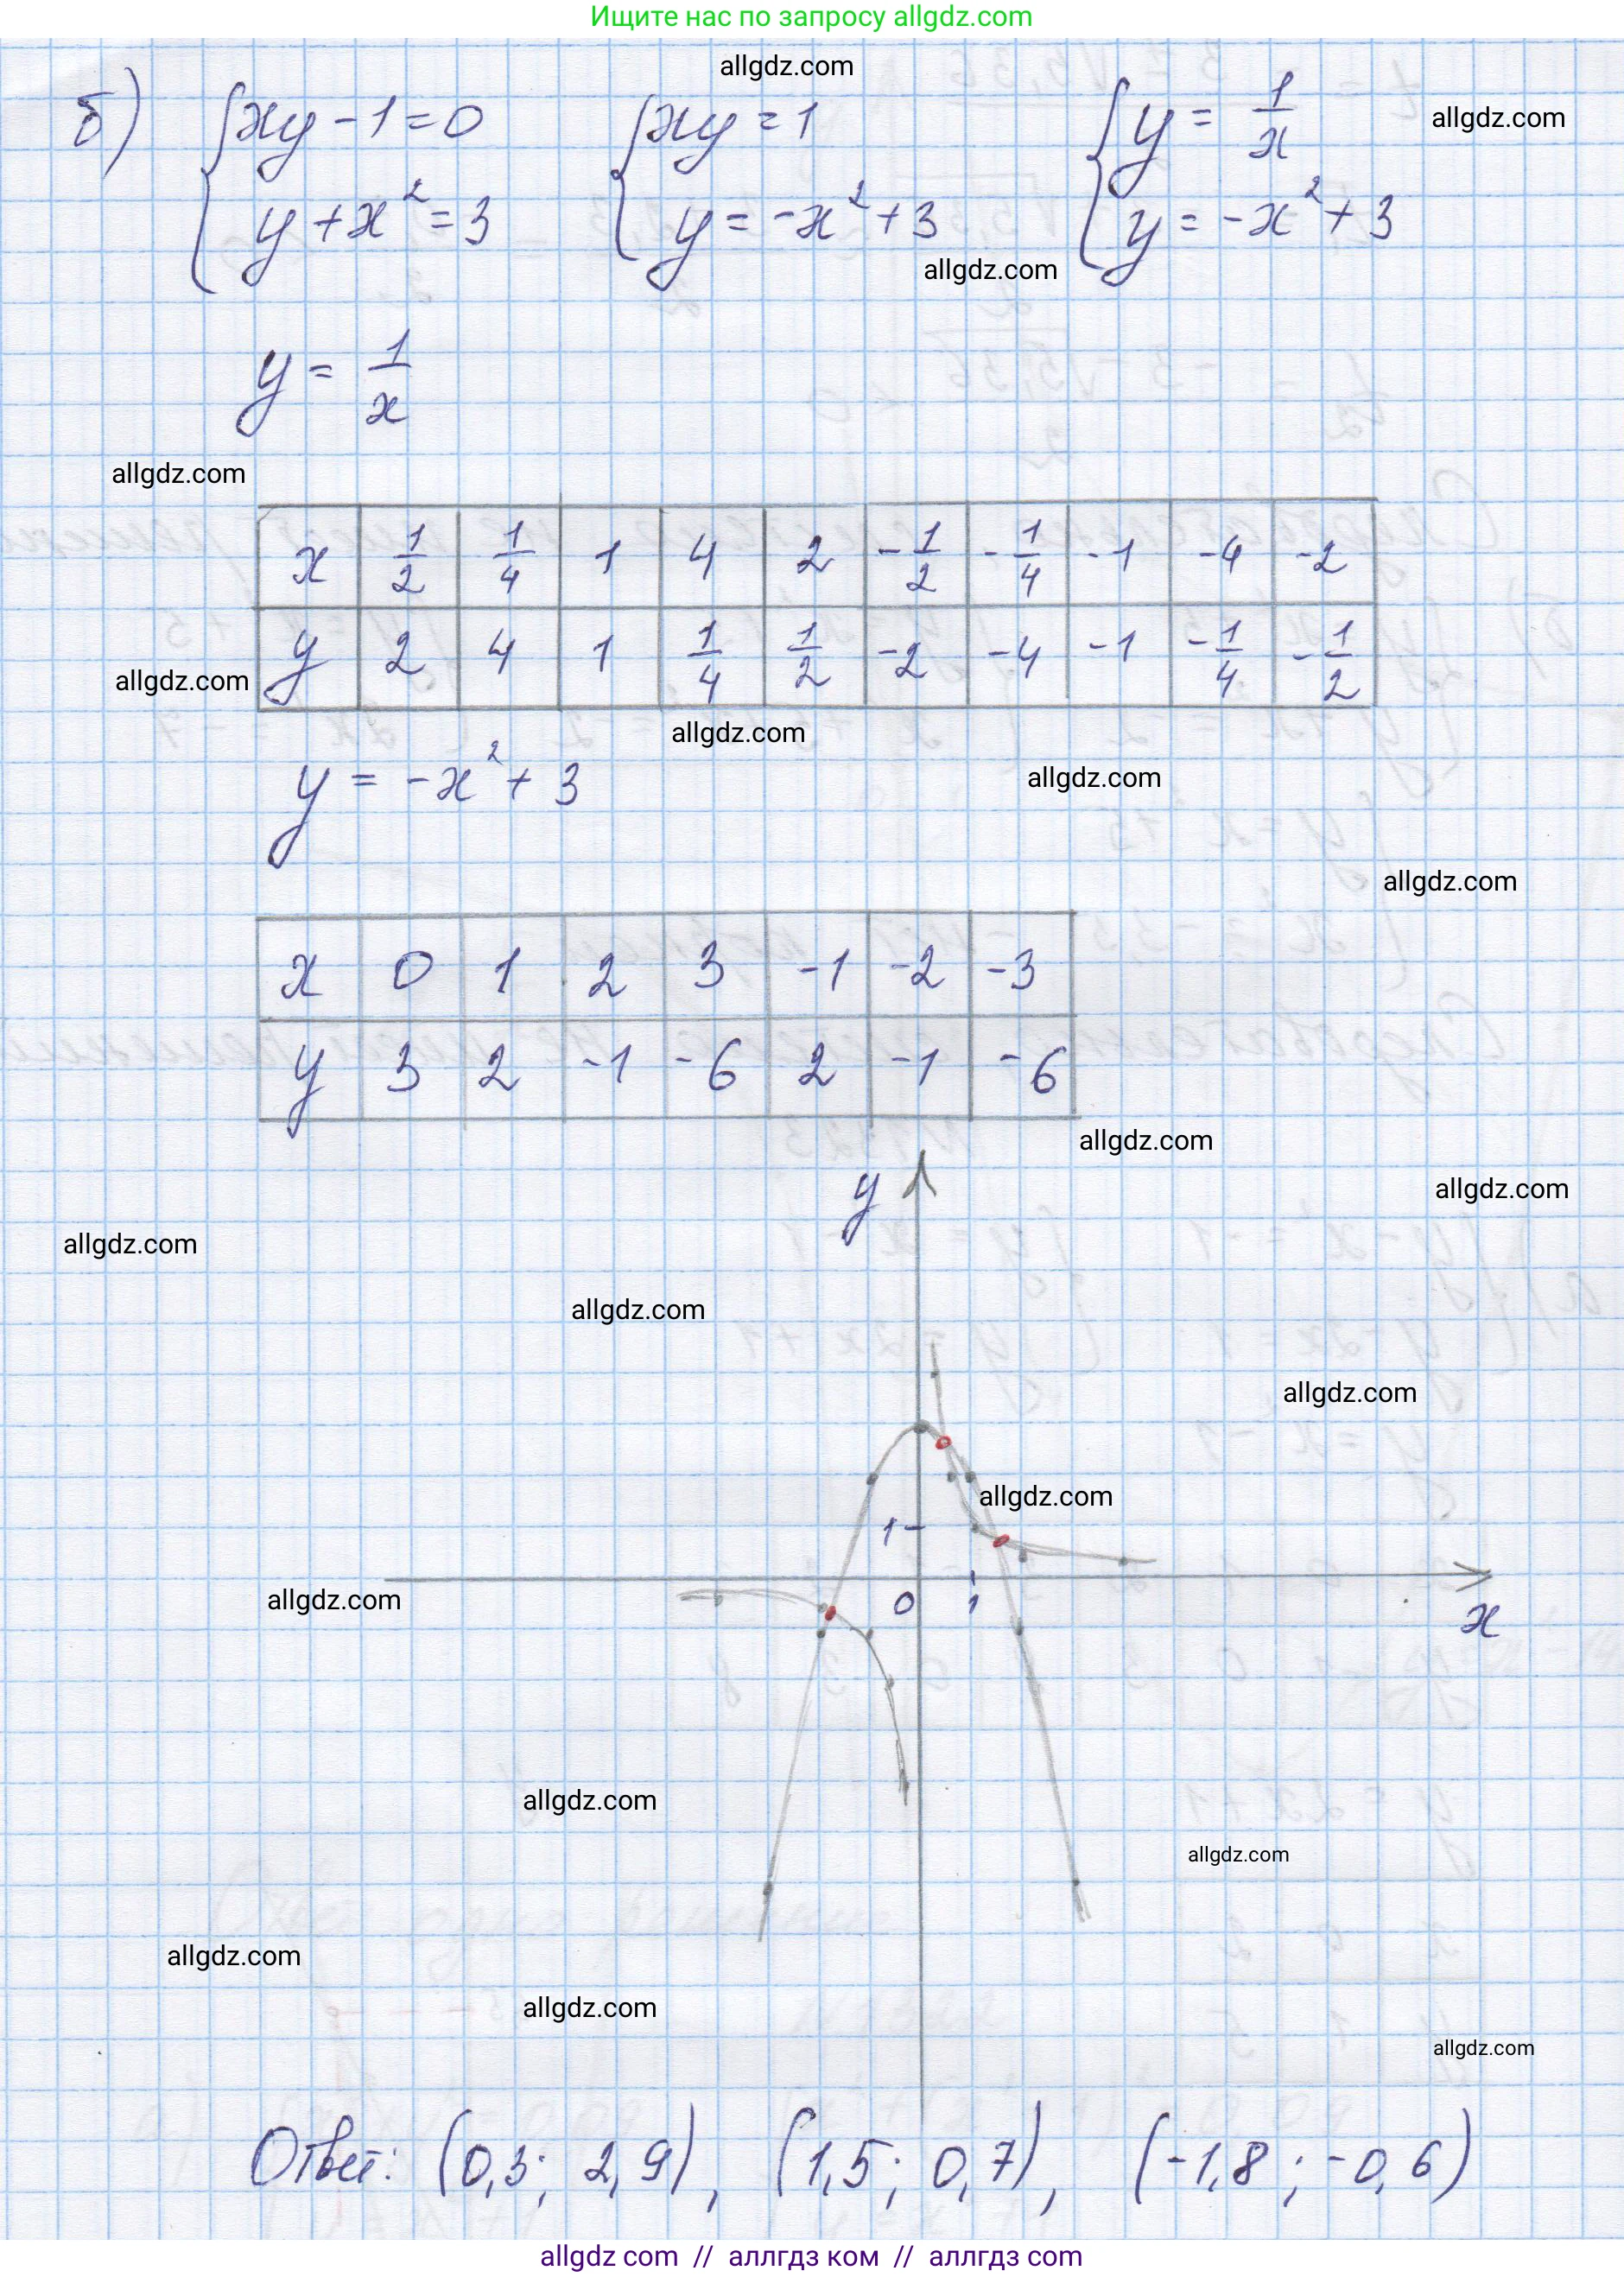 Ищите нас по запросу allgdz.com
allgdz.com
б) { xy - 1 = 0 { xy = 1 { y = 1/x allgdz.com
y + x² = 3 y = -x² + 3 y = -x² + 3
allgdz.com
y = 1/x
allgdz.com
x 1/2 1/4 1 4 2 -1/2 -1/4 -1 -4 -2
y 2 4 1 1/4 1/2 -2 -4 -1 -1/4 -1/2
allgdz.com
allgdz.com
y = -x² + 3
allgdz.com
allgdz.com
x 0 1 2 3 -1 -2 -3
y 3 2 -1 -6 2 -1 -6
allgdz.com
y
allgdz.com
allgdz.com
allgdz.com
allgdz.com
allgdz.com
1
allgdz.com
0 1 x
allgdz.com
allgdz.com
allgdz.com
allgdz.com
allgdz.com
Ответ: (0,3; 2,9), (1,5; 0,7), (-1,8; -0,6)
allgdz com // аллгдз ком // аллгдз com